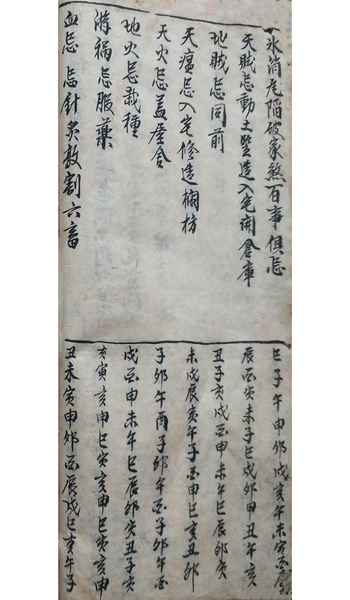 氷消瓦陷破家煞百事俱忌
天賊忌動土竪造入宅開倉庫
地賊忌同前
天瘟忌入宅修造欄枋
天火忌盖屋舍
地火忌栽種
游禍忌服藥
血忌 忌針灸割六畜
巳子午申卯戌亥午未寅酉辰
辰酉寅未子巳戌卯申丑午亥
丑子亥戌酉申未午巳辰卯寅
未戌辰寅午子酉申巳亥丑卯
子卯午酉子卯午酉子卯午酉
戌酉申未午巳辰卯寅丑子亥
寅亥申巳寅亥申巳寅亥申
丑未寅申卯酉辰戌巳亥午子